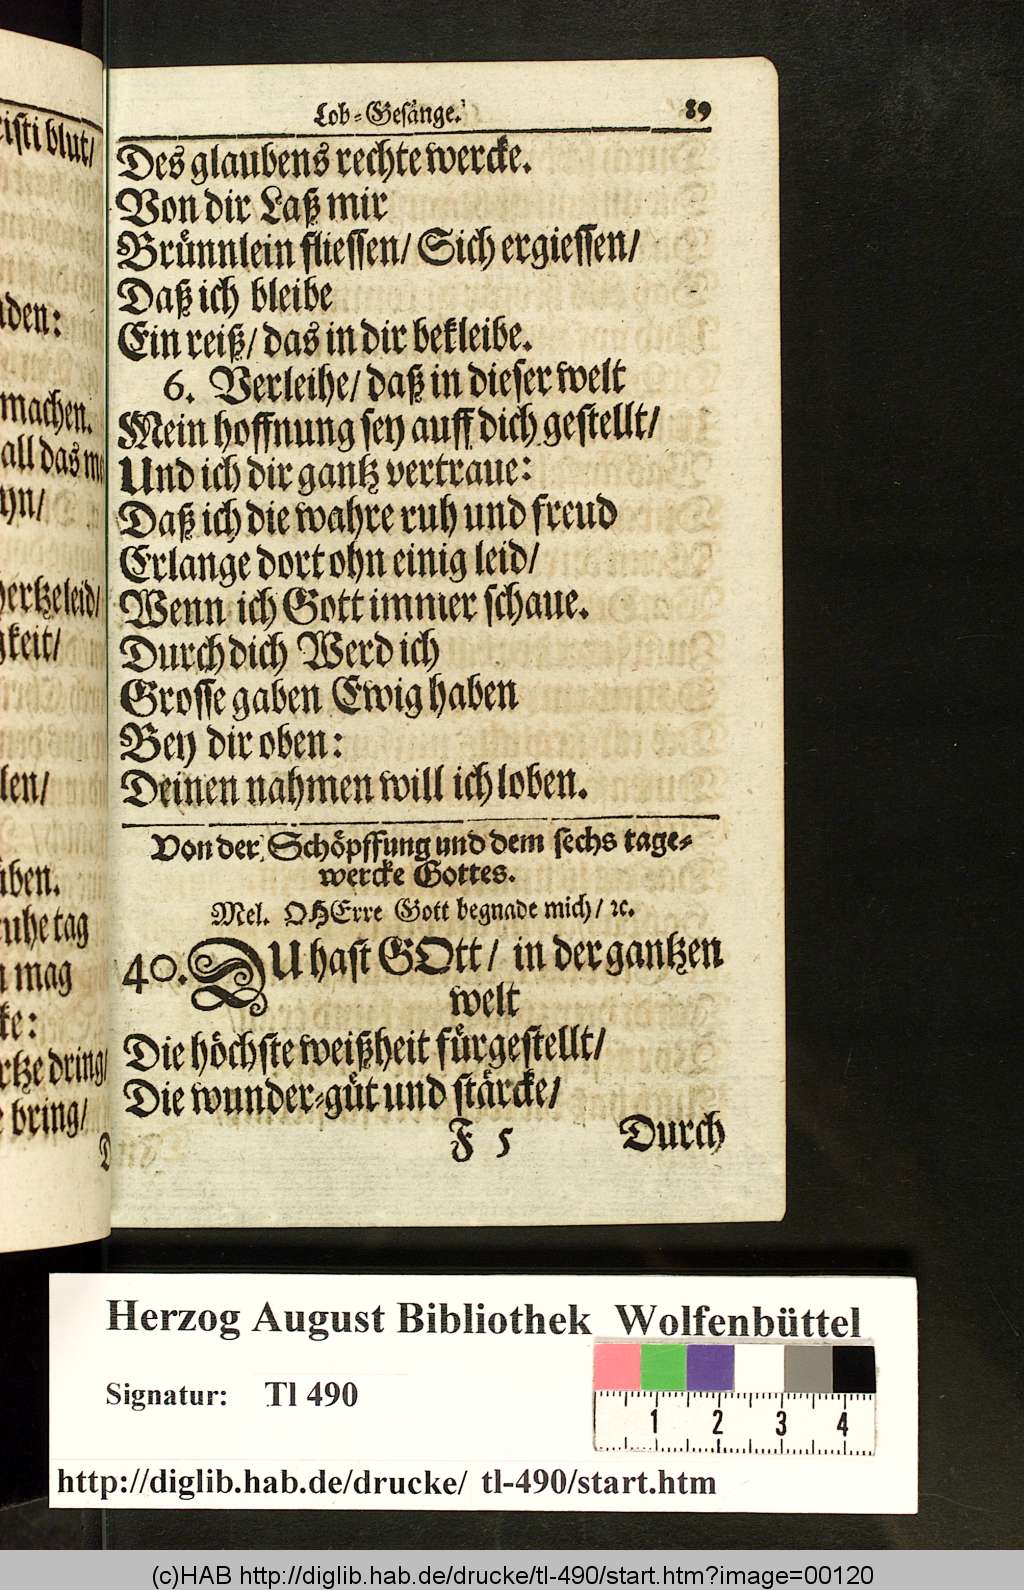 isti blut/
den:
machen.
all das
yn/
hertzeleid/
gkeit/
len/
ben.
ruhe tag
mag
ke:
rtze dring/
bring/
D
Lob-Gesänge. 89
Des glaubens rechte wercke.
Von dir Laß mir
Brünnlein fliessen/ Sich ergiessen/
Daß ich bleibe
Ein reiß/ das in dir bekleibe.
6. Verleihe/ daß in dieser welt
Mein hoffnung sey auff dich gestellt/
Und ich dir gantz vertraue:
Daß ich die wahre ruh und freud
Erlange dort ohn einig leid/
Wenn ich Gott immer schaue.
Durch dich Werd ich
Grosse gaben Ewig haben
Bey dir oben:
Deinen nahmen will ich loben.
Von der Schöpffung und dem sechs tage-
wercke Gottes.
Mel. O HErre Gott begnade mich/ ꝛc.
40. DU hast GOtt/ in der gantzen
welt
Die höchste weißheit fürgestellt/
Die wunder-güt und stärcke/
F 5 Durch
Herzog August Bibliothek Wolfenbüttel
Signatur: Tl 490
1 2 3 4
http://diglib.hab.de/drucke/ tl-490/start.htm
(c)HAB http://diglib.hab.de/drucke/tl-490/start.htm?image=00120